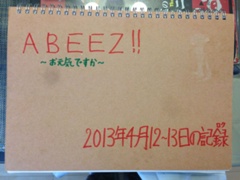 ABEEZ!!
〜お元気ですか〜
ログ
2013年4月12〜13日の記録